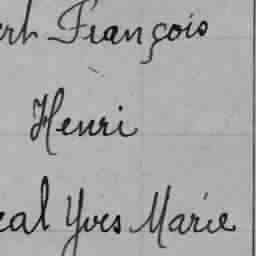 François
Henri
Yves Marie